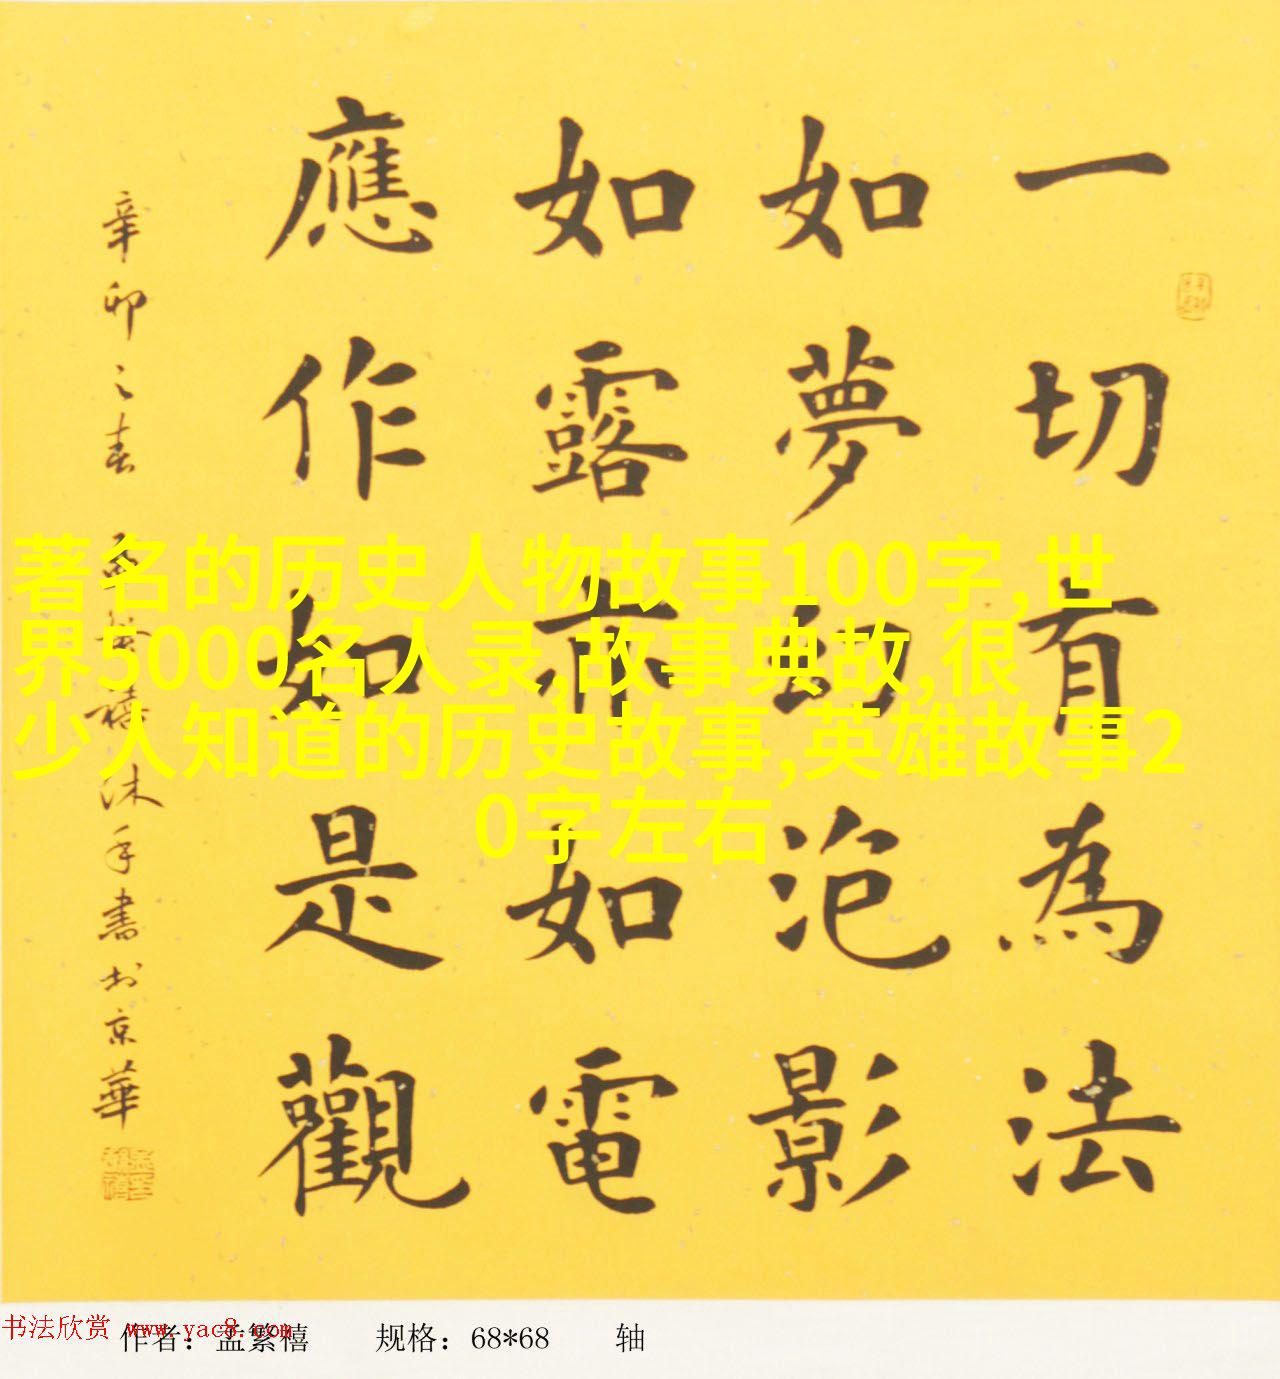 一切有為法
如夢幻泡影
如露亦如電
應作如是觀
辛卯之春 孟繁禧沐手書於京華
著名的历史人物故事100字,世
界5000名人录,故事典故,很
少人知道的历史故事,英雄故事2
0字左右
书法欣赏 www.yac8.com
作者：孟繁禧 规格：68*68 轴